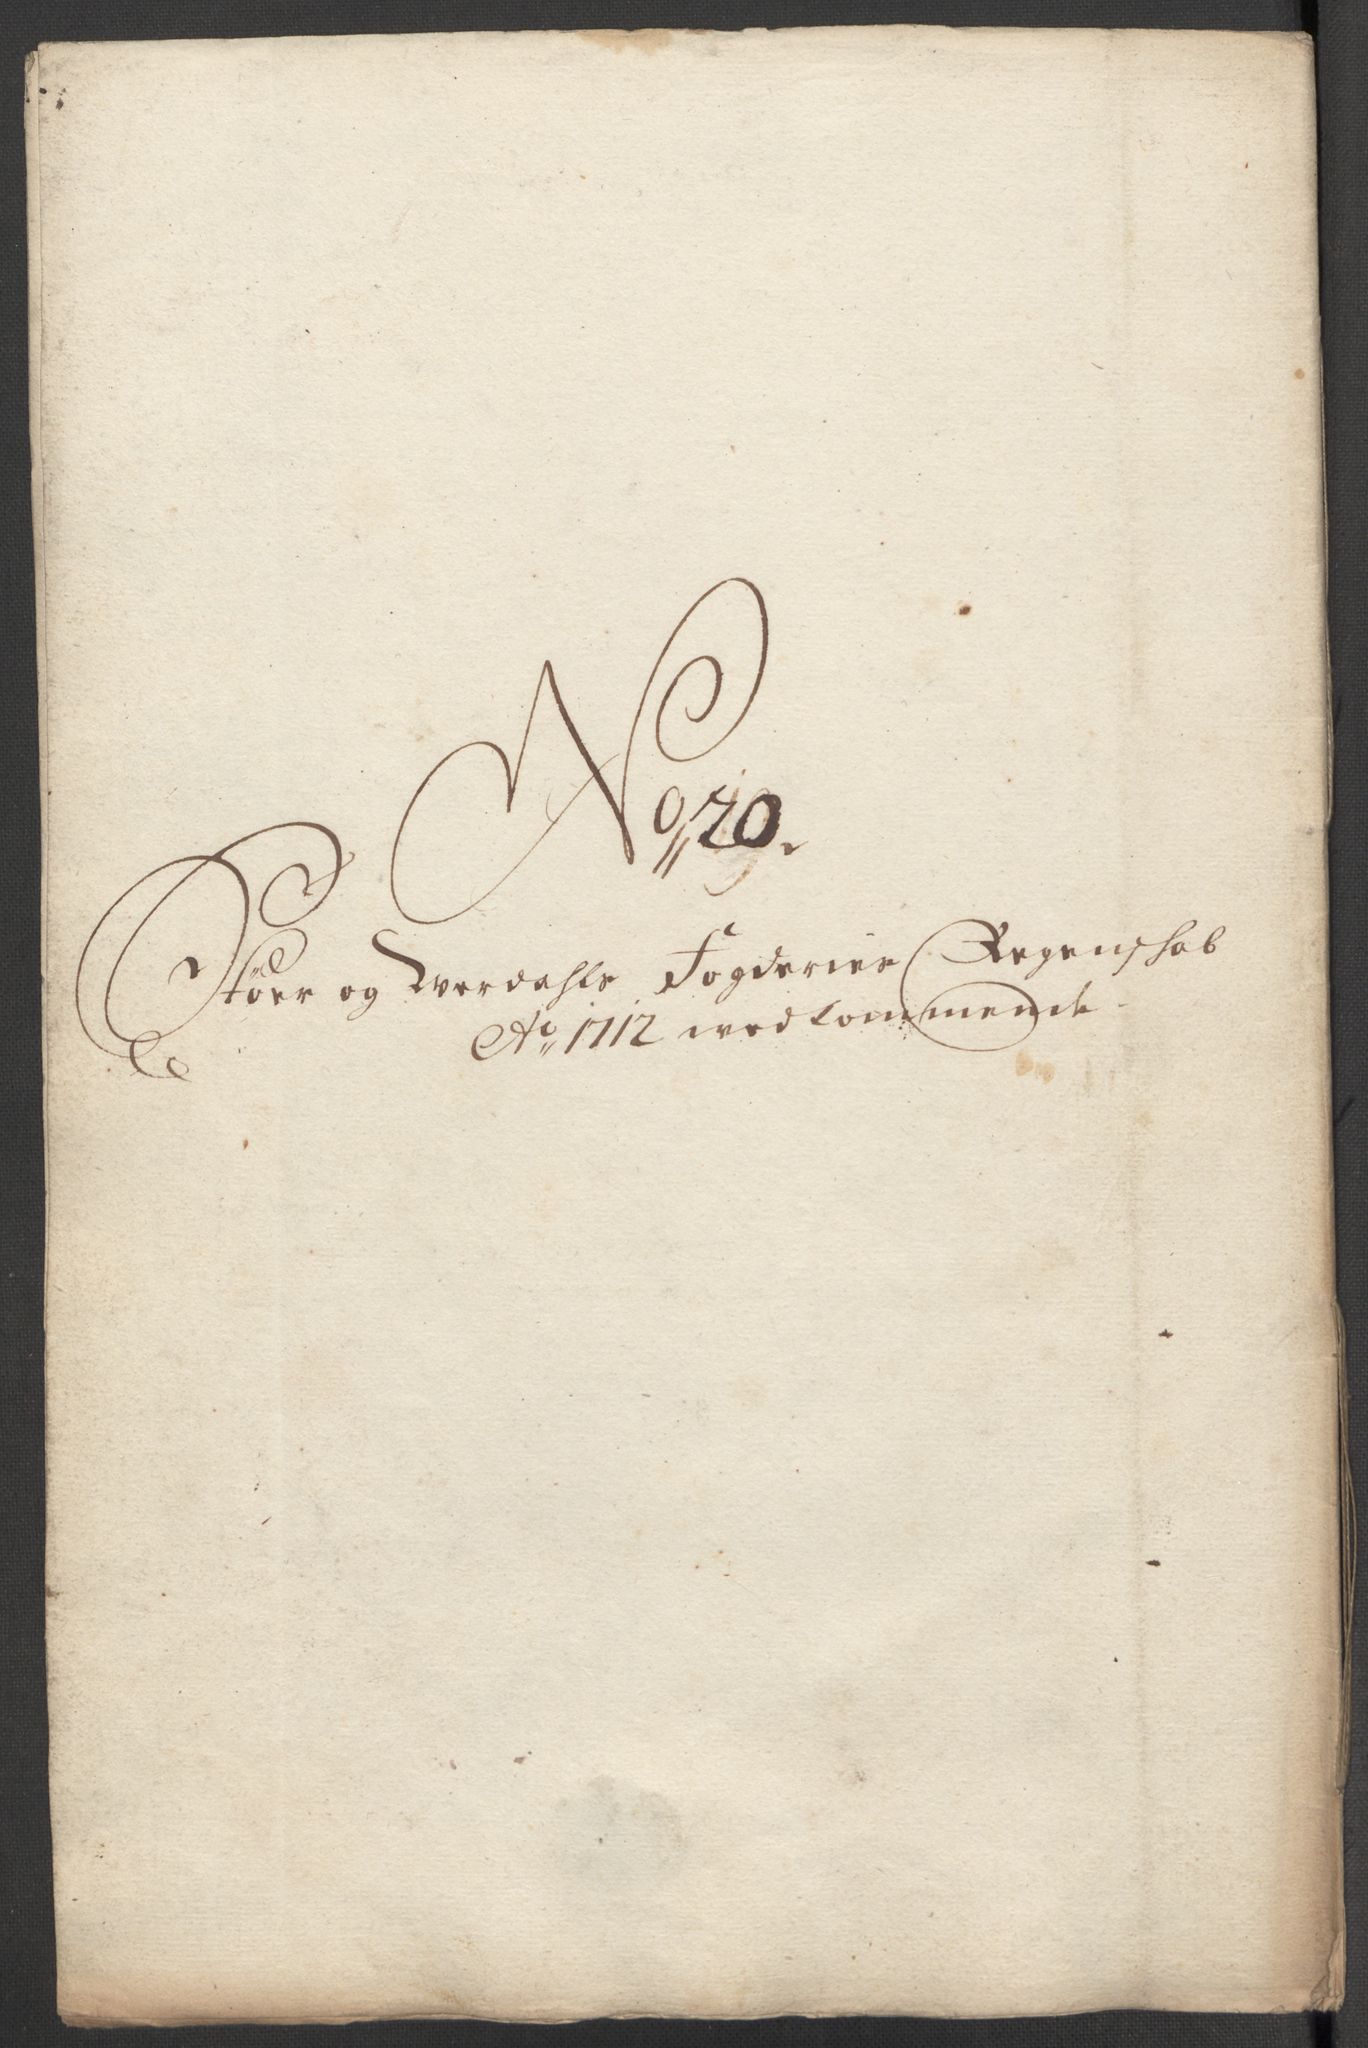 No 20.
Støer og Werdahls Fogderies Regenskab
Ao 1712 wedkommende